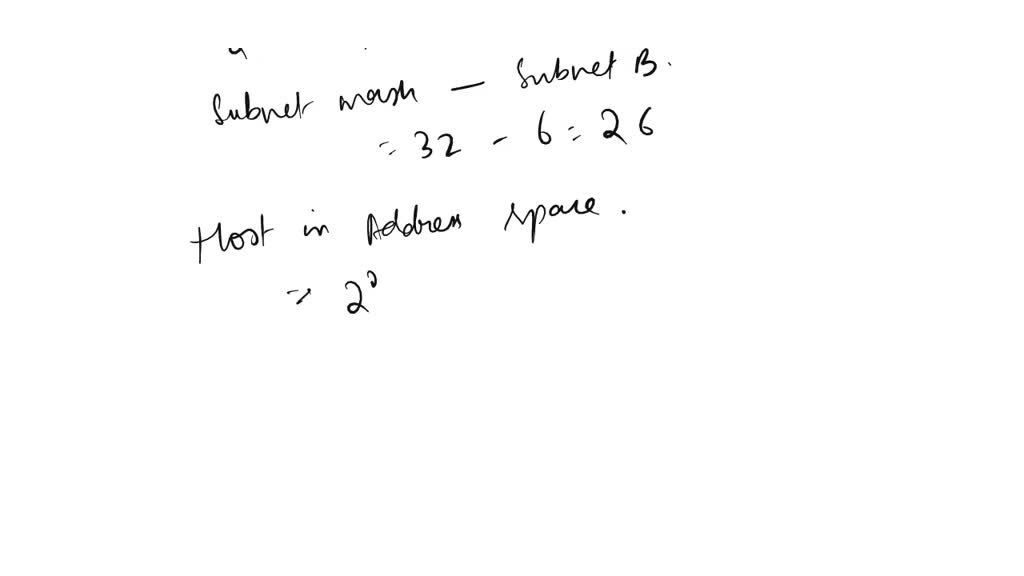 Subnet mask — Subnet B.
= 32 - 6 = 26
Host in Address space.
=> 2